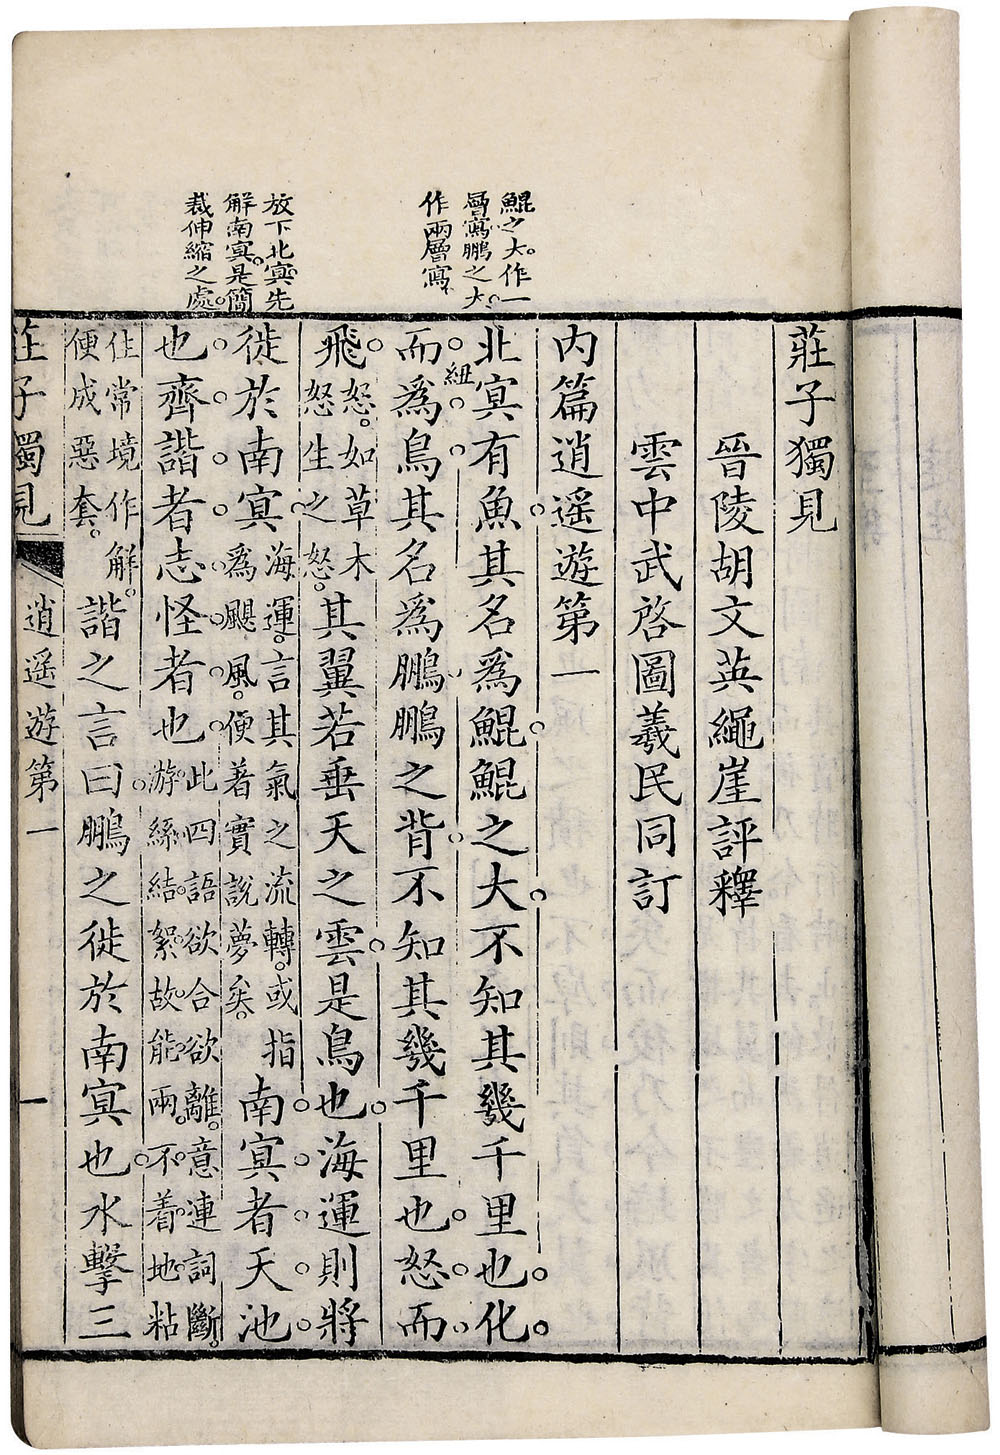 鯤之大作一
層寫鵬之大
作兩層寫
放下北㝠先
解南㝠是簡
裁伸縮之處
莊子獨見
晉陵胡文英繩崖評釋
雲中武啓圖羲民同訂
內篇逍遥遊第一
北㝠有魚其名爲鯤鯤之大不知其幾千里也化
而爲鳥其名爲鵬鵬之背不知其幾千里也怒而
紐
飛
怒如草木
怒生之怒
其翼若垂天之雲是鳥也海運則將
徙於南㝠
海運言其氣之流轉或指
爲颶風便著實說夢矣
南㝠者天池
也齊諧者志怪者也
此四語欲合欲離意連詞斷
游絲結絮故能兩不着地粘
住常境作解
便成惡套
諧之言曰鵬之徙於南㝠也水擊三
莊子獨見
逍遥遊第一
一